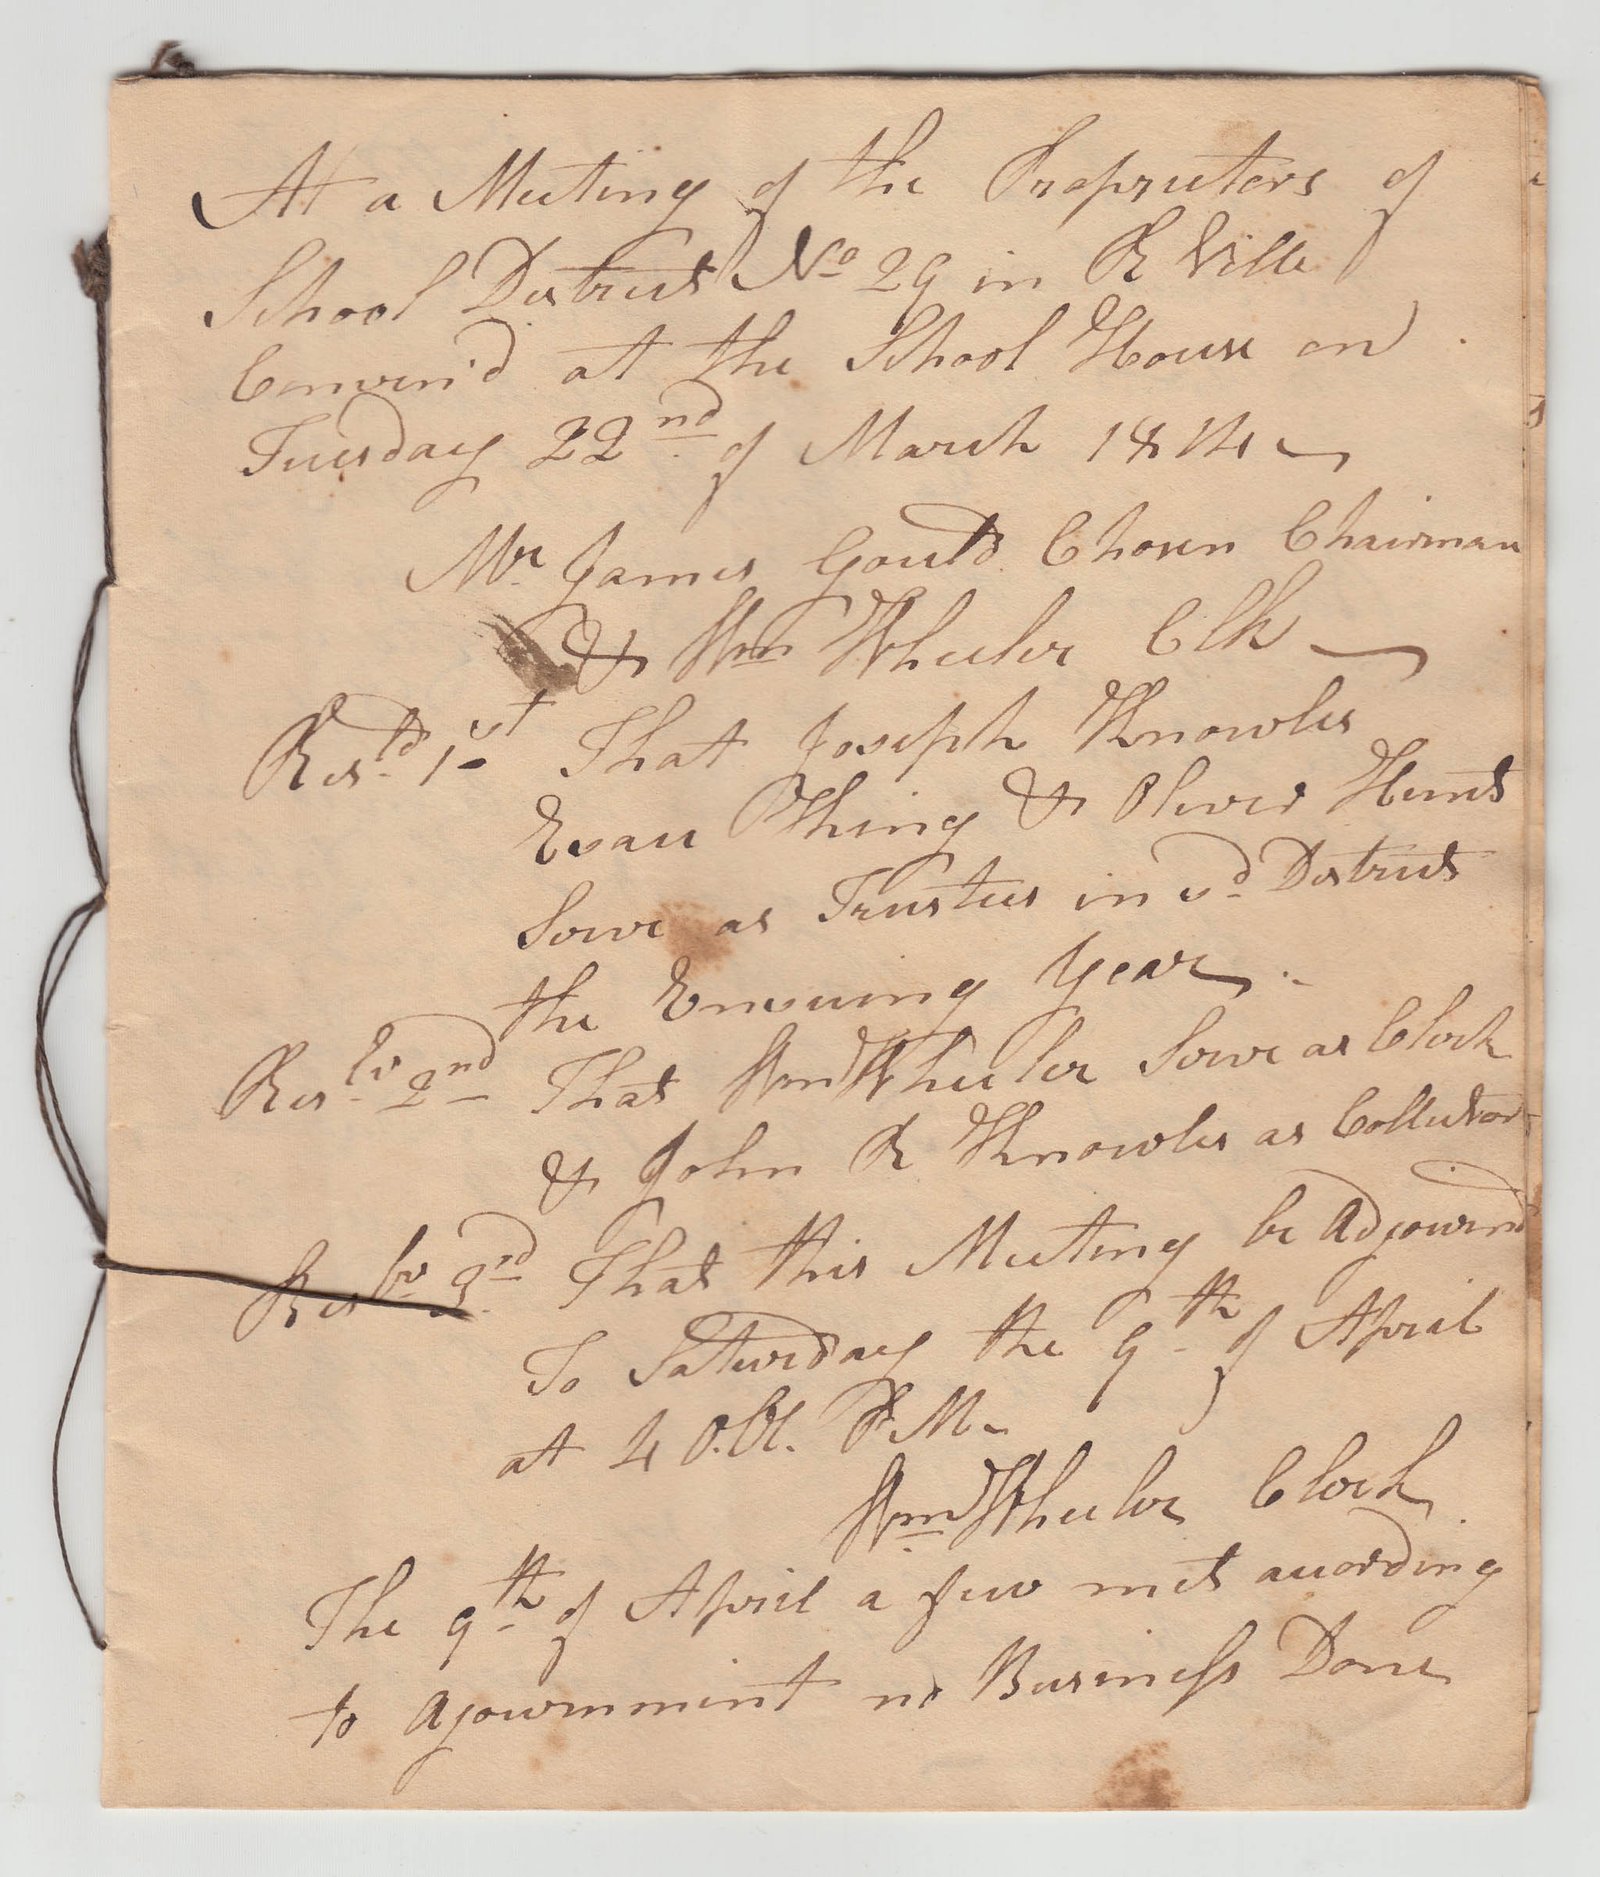 At a Meeting of the Proprietors of
School District No 29 in R Ville
Conven'd at the School House on
Tuesday 22nd of March 1814
Mr James Gould Chosen Chairman
& Wm Wheeler Clk
Resld 1st That Joseph Knowles
Evan Thing & Oliver Hunt
Serve as Trustees in sd District
the Ensuing Year
Reslv 2nd That Wm Wheeler Serve as Clerk
& John R Knowles as Collector
Reslv 3rd That this Meeting be Adjournd
To Saturday the 9th of April
at 4 O.Cl. P.M
Wm Wheeler Clerk
The 9th of April a few met according
to Ajournment no Business Done